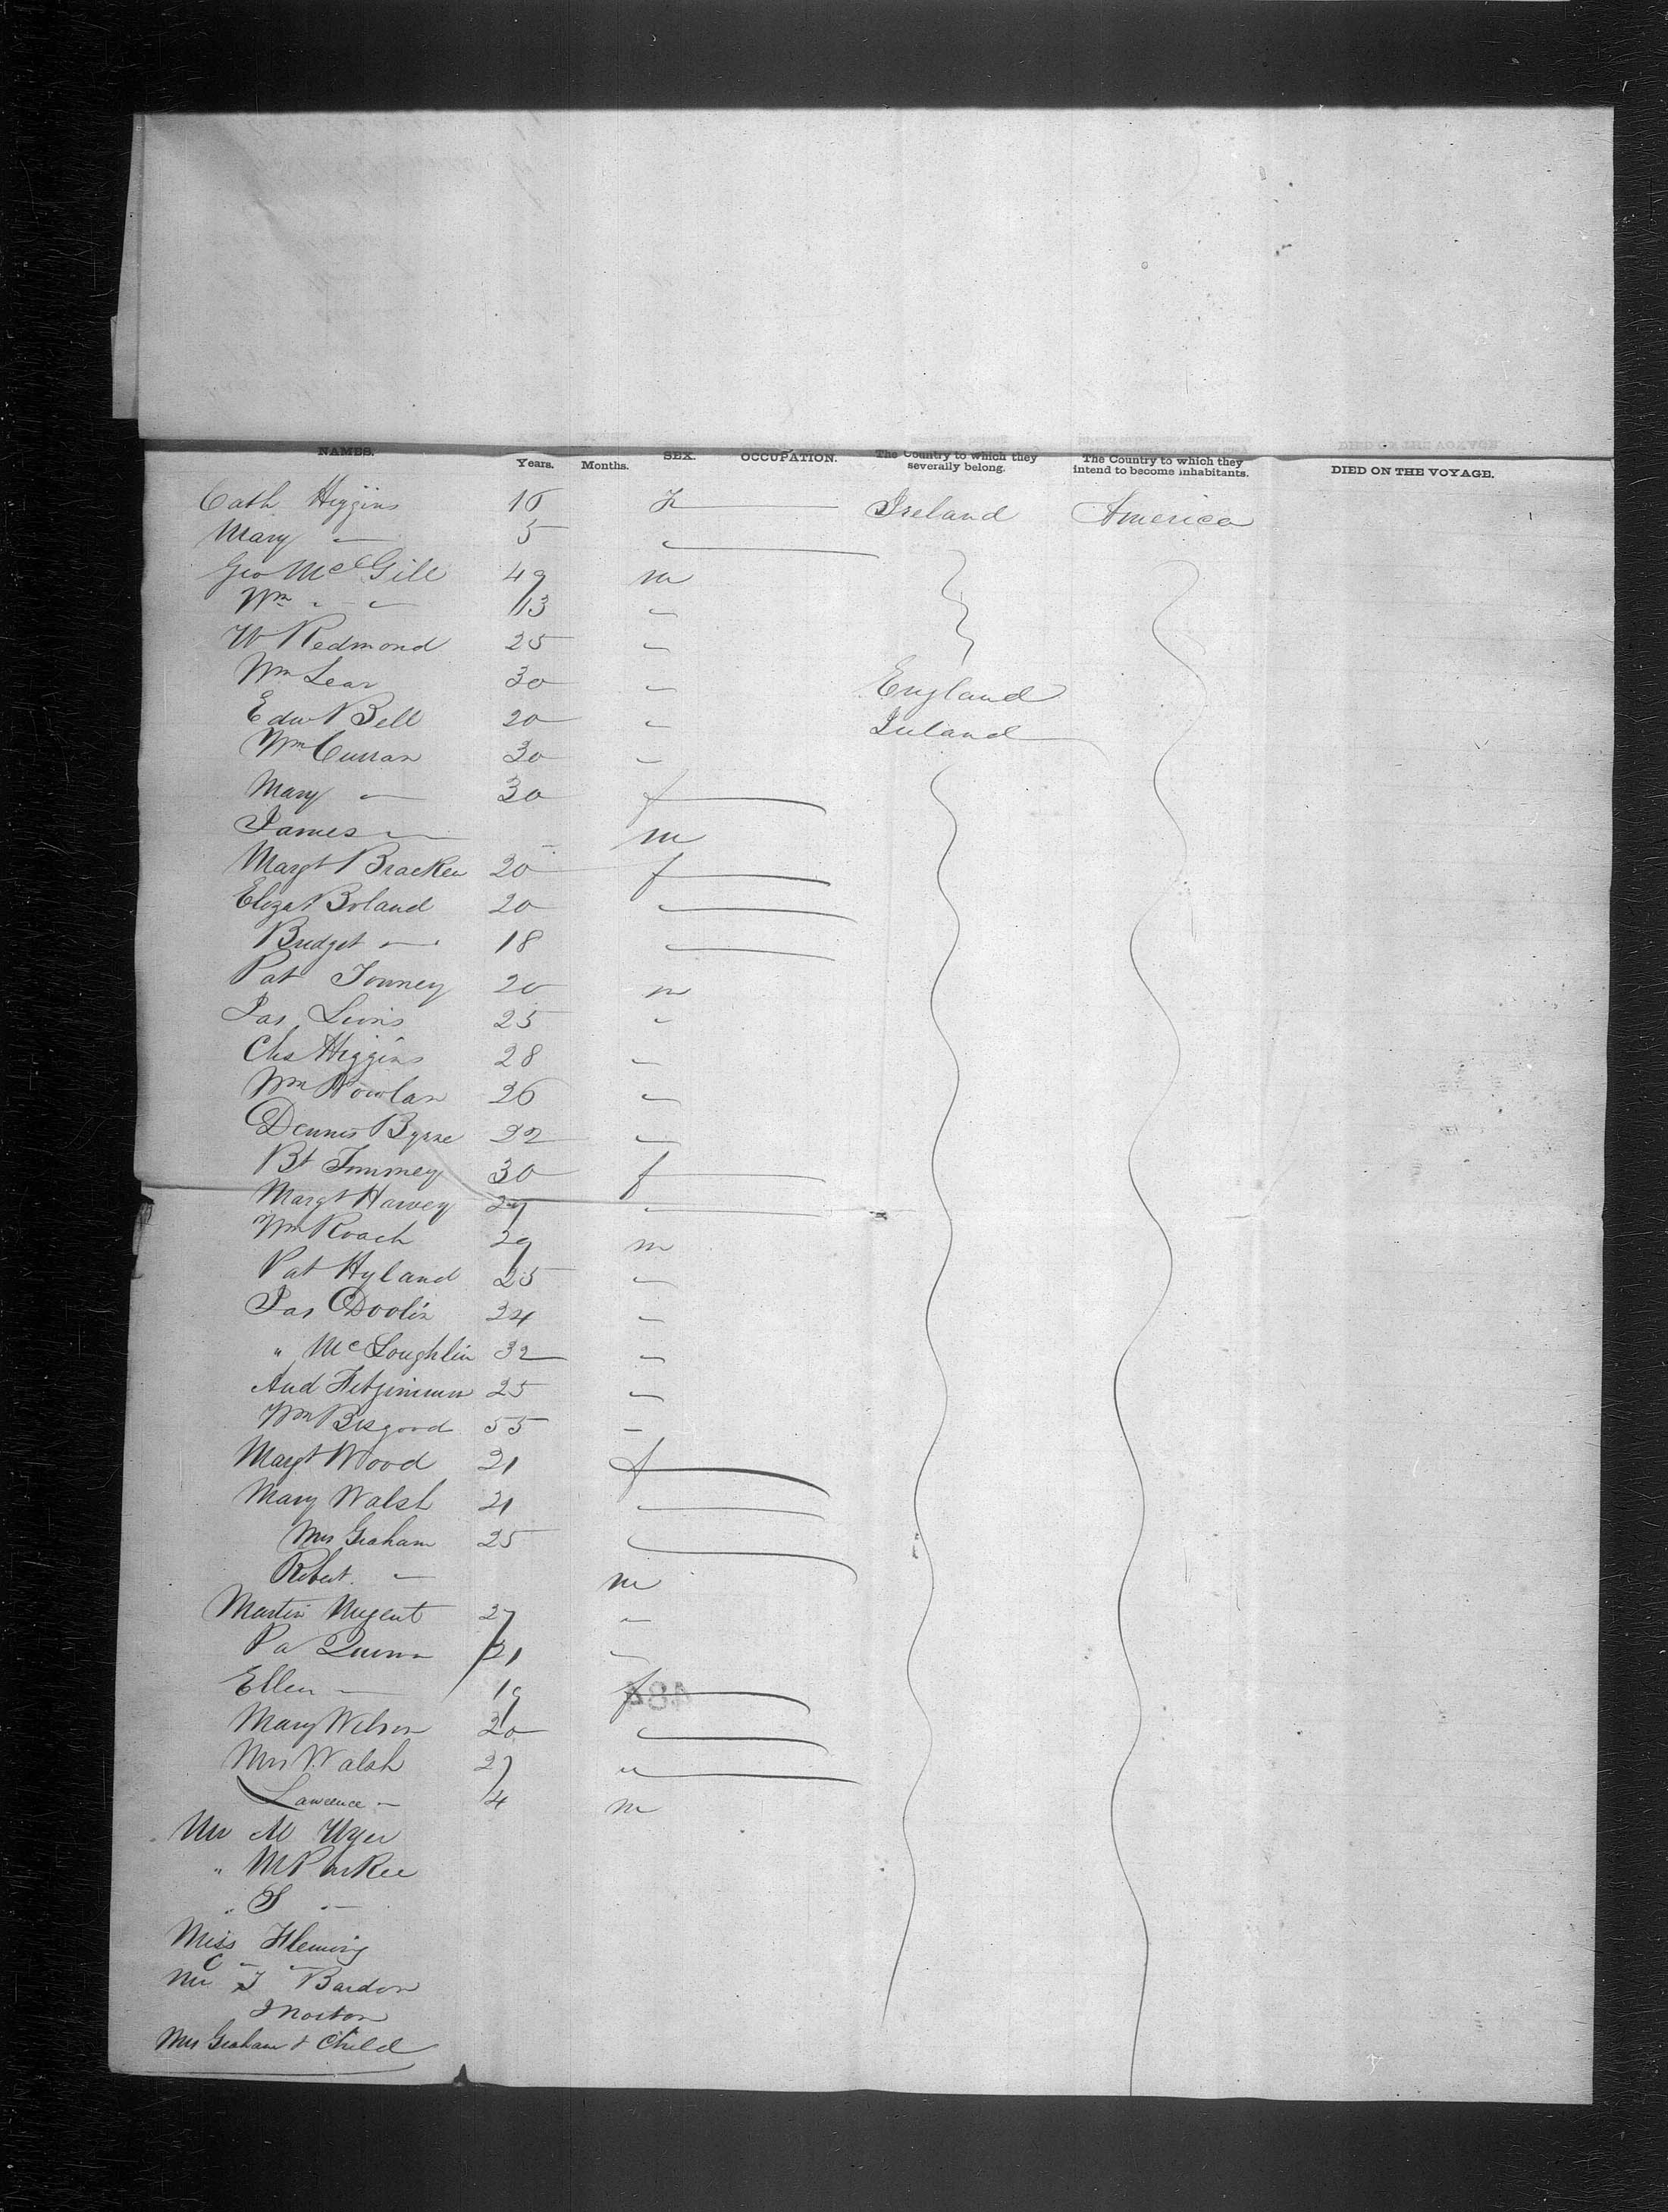 NAMES. Years. Months. SEX. OCCUPATION. The Country to which they severally belong. The Country to which they intend to become inhabitants. DIED ON THE VOYAGE.
Cath Higgins 16 F Ireland America
Mary — 5 —
Geo McGill 49 m
Wm " — 13 —
W Redmond 25 —
Wm Lear 30 — England
Edw Bell 20 — Ireland
Wm Curran 30 —
Mary — 30 f
James — - m
Margt Bracken 20 f
Eliza Boland 20 —
Bridget — 18 —
Pat Tonney 20 m
Jas Lewis 25 "
Chs Higgins 28 —
Wm Nowlan 26 —
Dennis Byrne 22 —
Bt Tommey 30 f
Margt Harvey 27 —
Wm Roach 29 m
Pat Hyland 25 —
Jas Doolin 24 —
" McLoughlin 32 —
And 25 —
Wm Bisgood 55 —
Margt Wood 21 f
Mary Walsh 21 —
Mrs Graham 25 —
Robert — m
Martin Nugent 27 —
Pa Quinn 21 —
Ellen — 19 f
Mary Wilson 20 —
Mrs Walsh 27 "
Lawrence — 4 m
Mr M
" M Parker
" S —
Miss Fleming
" C — —
Mr J Bardon
Morton
Mrs Graham & Child